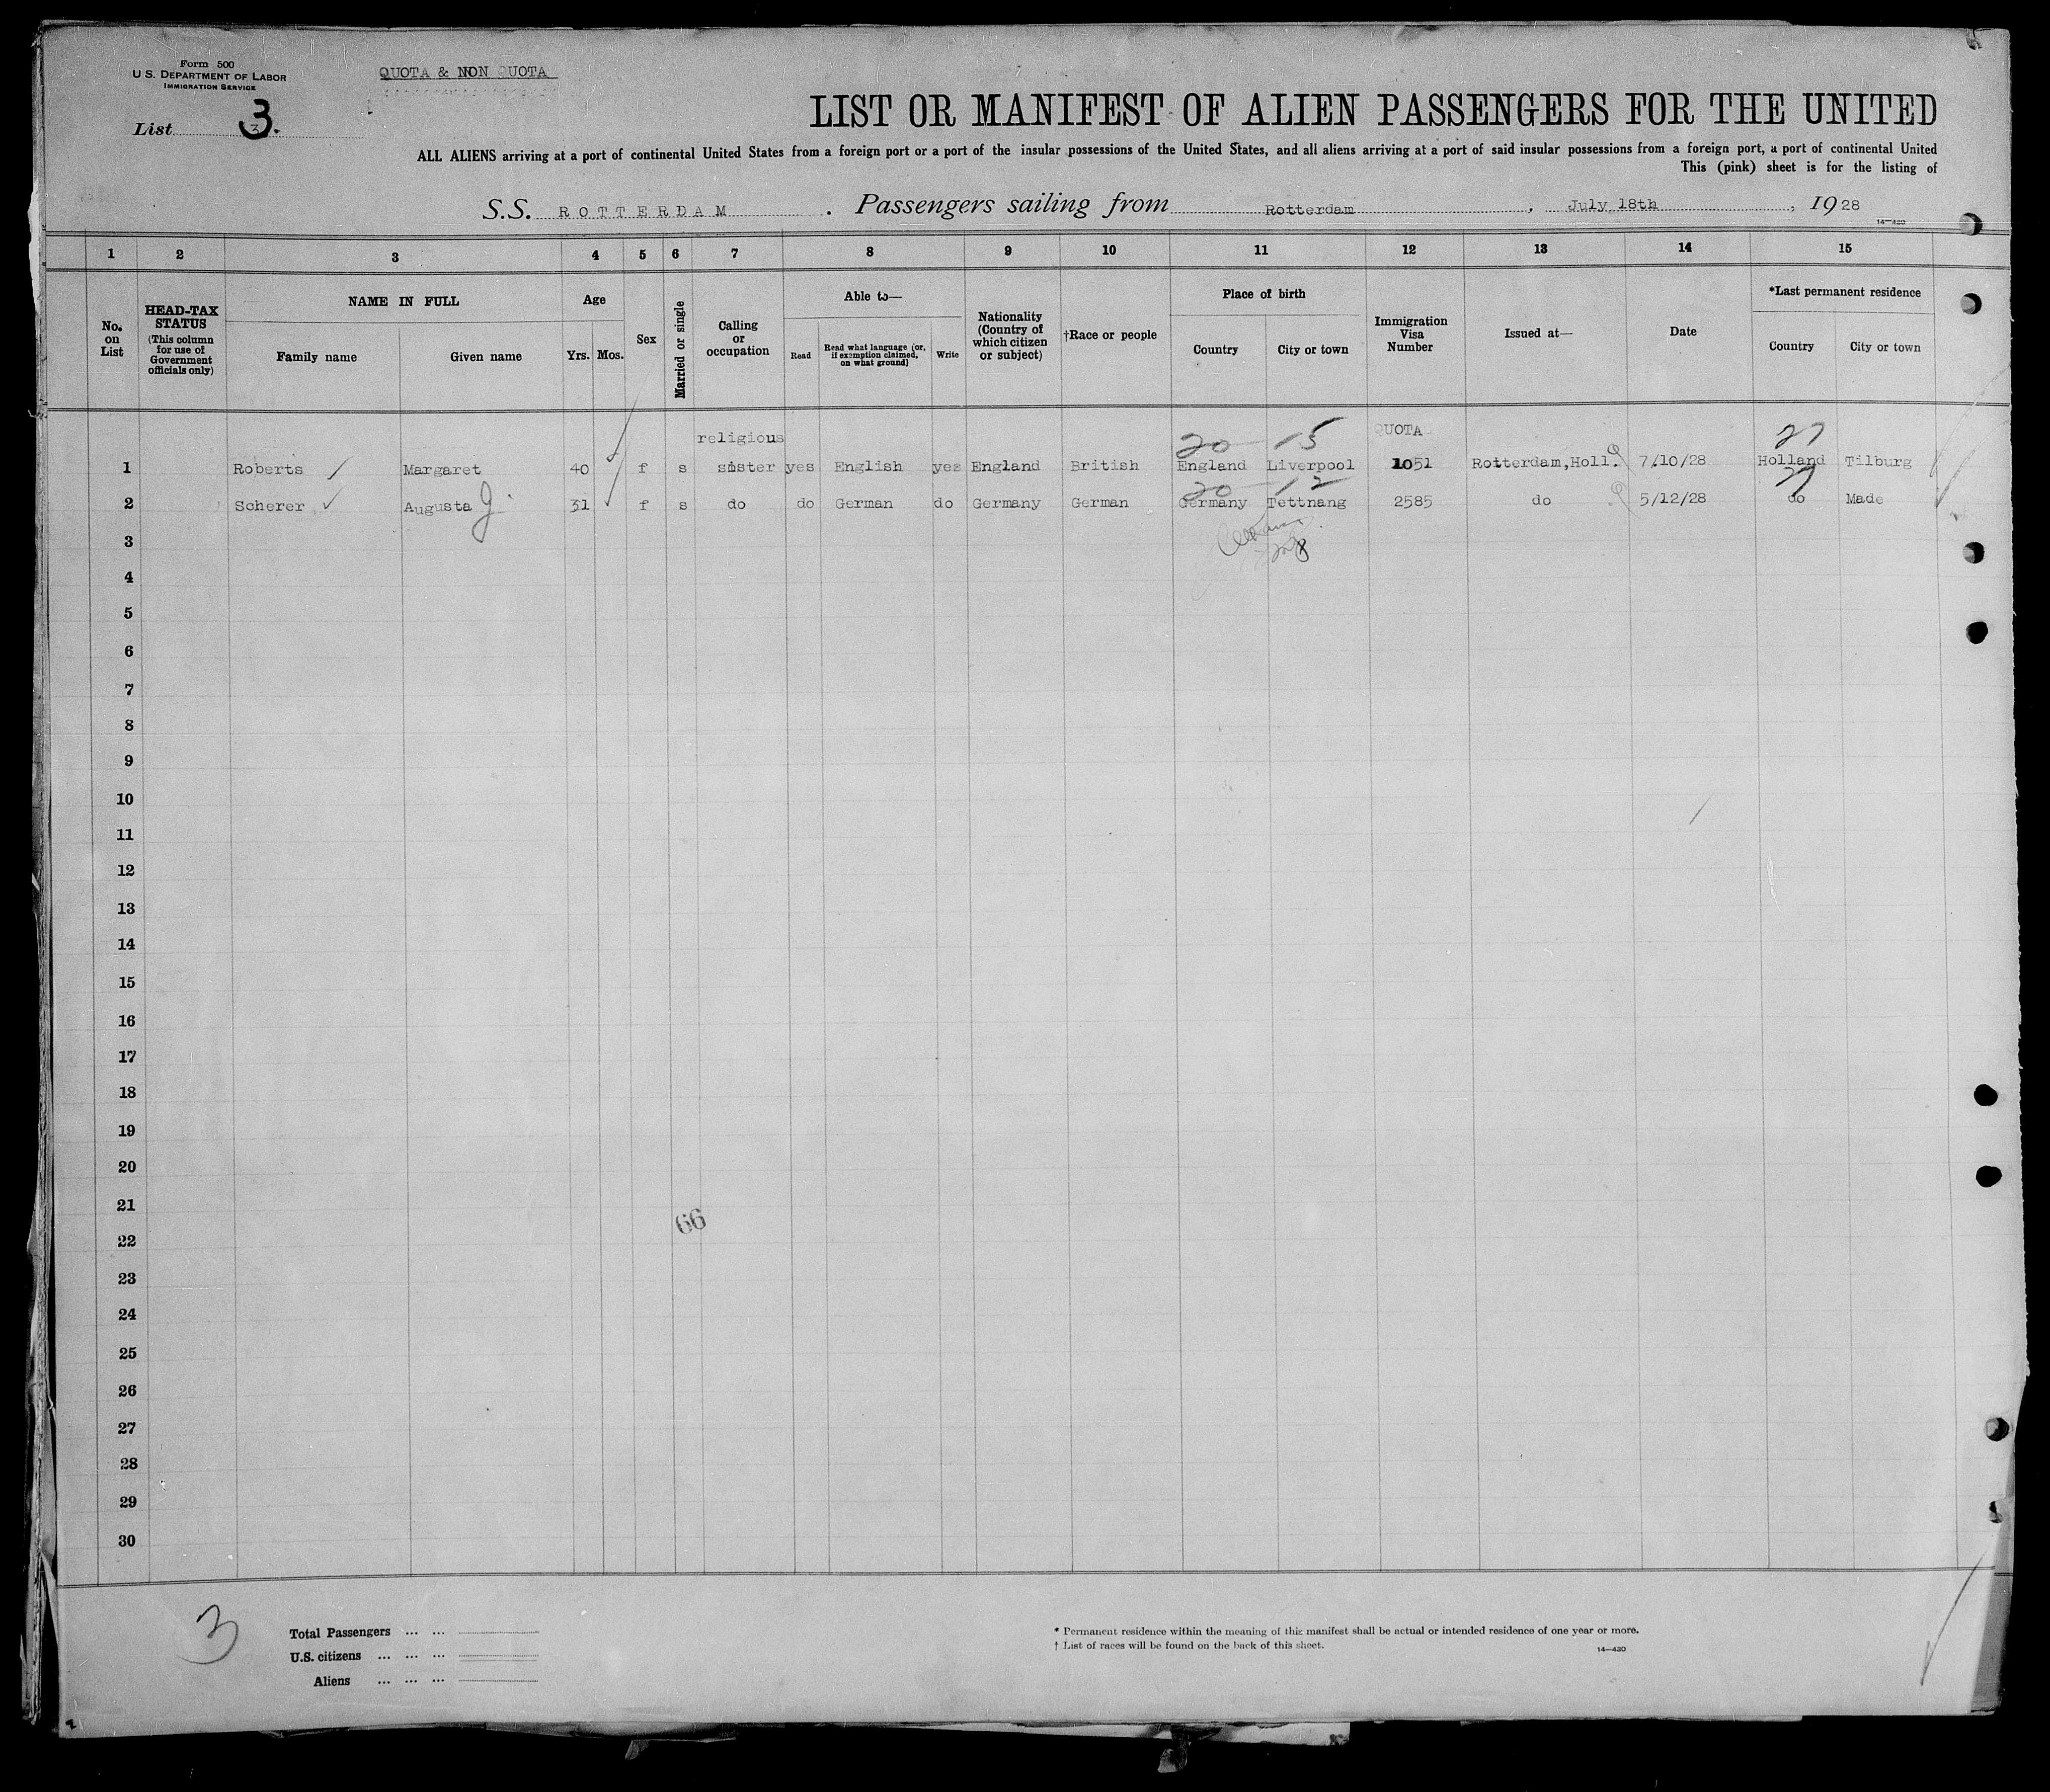 Form 500
U. S. DEPARTMENT OF LABOR
IMMIGRATION SERVICE
QUOTA & NON QUOTA
List 3.
LIST OR MANIFEST OF ALIEN PASSENGERS FOR THE UNITED
ALL ALIENS arriving at a port of continental United States from a foreign port or a port of the insular possessions of the United States, and all aliens arriving at a port of said insular possessions from a foreign port, a port of continental United
This (pink) sheet is for the listing of
S.S. ROTTERDAM. Passengers sailing from Rotterdam, July 18th, 1928
14—430
1 2 3 4 5 6 7 8 9 10 11 12 13 14 15
No. on List
HEAD-TAX STATUS (This column for use of Government officials only)
NAME IN FULL
Family name
Given name
Age
Yrs.
Mos.
Sex
Married or single
Calling or occupation
Able to—
Read
Read what language (or, if exemption claimed, on what ground)
Write
Nationality (Country of which citizen or subject)
†Race or people
Place of birth
Country
City or town
Immigration Visa Number
Issued at—
Date
*Last permanent residence
Country
City or town
religious 20 15 QUOTA 27
1 Roberts Margaret 40 f s sister yes English yes England British England Liverpool 1051 Rotterdam,Holl. 7/10/28 Holland Tilburg
20 12 27
2 Scherer Augusta J. 31 f s do do German do Germany German Germany Tettnang 2585 do 5/12/28 do Made
3
4
5
6
7
8
9
10
11
12
13
14
15
16
17
18
19
20
21
66
22
23
24
25
26
27
28
29
30
3
Total Passengers ... ...
U.S. citizens ... ... ...
Aliens ... ... ...
* Permanent residence within the meaning of this manifest shall be actual or intended residence of one year or more.
† List of races will be found on the back of this sheet.
14—430